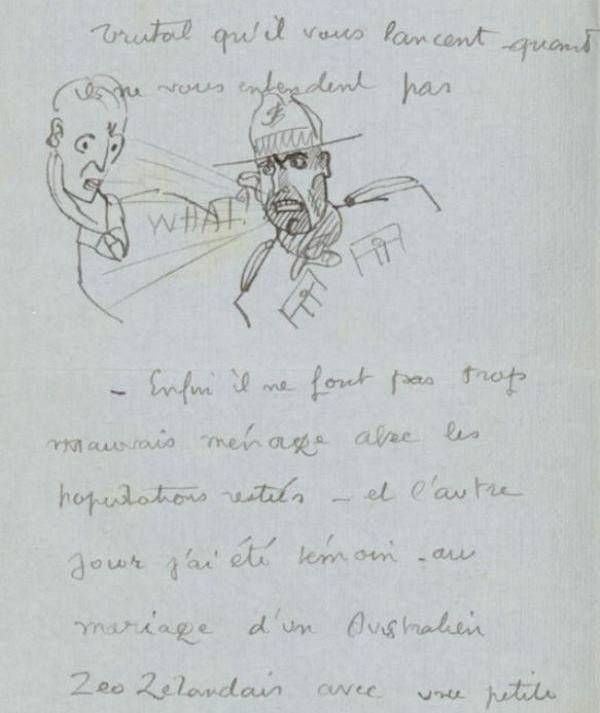 brutal qu'il vous lancent quand
ils ne vous entendent pas
WHAT!
- Enfin il ne font pas trop
mauvais ménage avec les
populations restées - et l'autre
jour j'ai été témoin au
mariage d'un Australien
Zeo Zélandais avec une petite